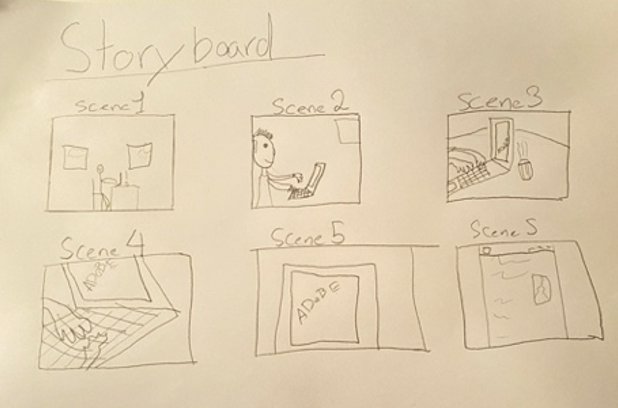 Storyboard
Scene 1
Scene 2
Scene 3
Scene 4
Scene 5
Scene S
ADOBE
ADOBE